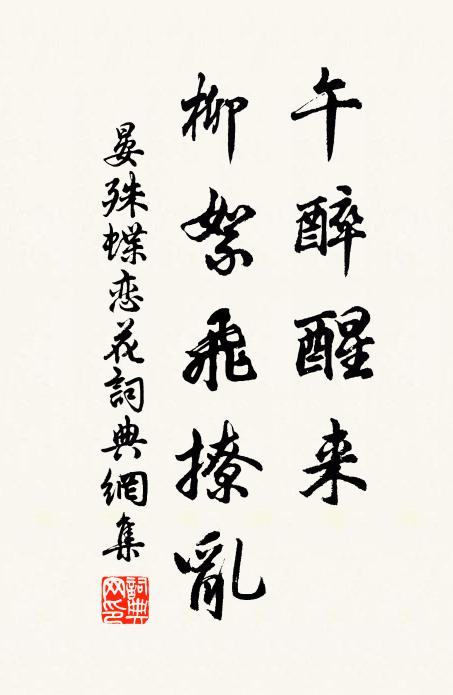 午醉醒来
柳絮飛撩亂
晏殊蝶恋花詞典網集
詞典網印